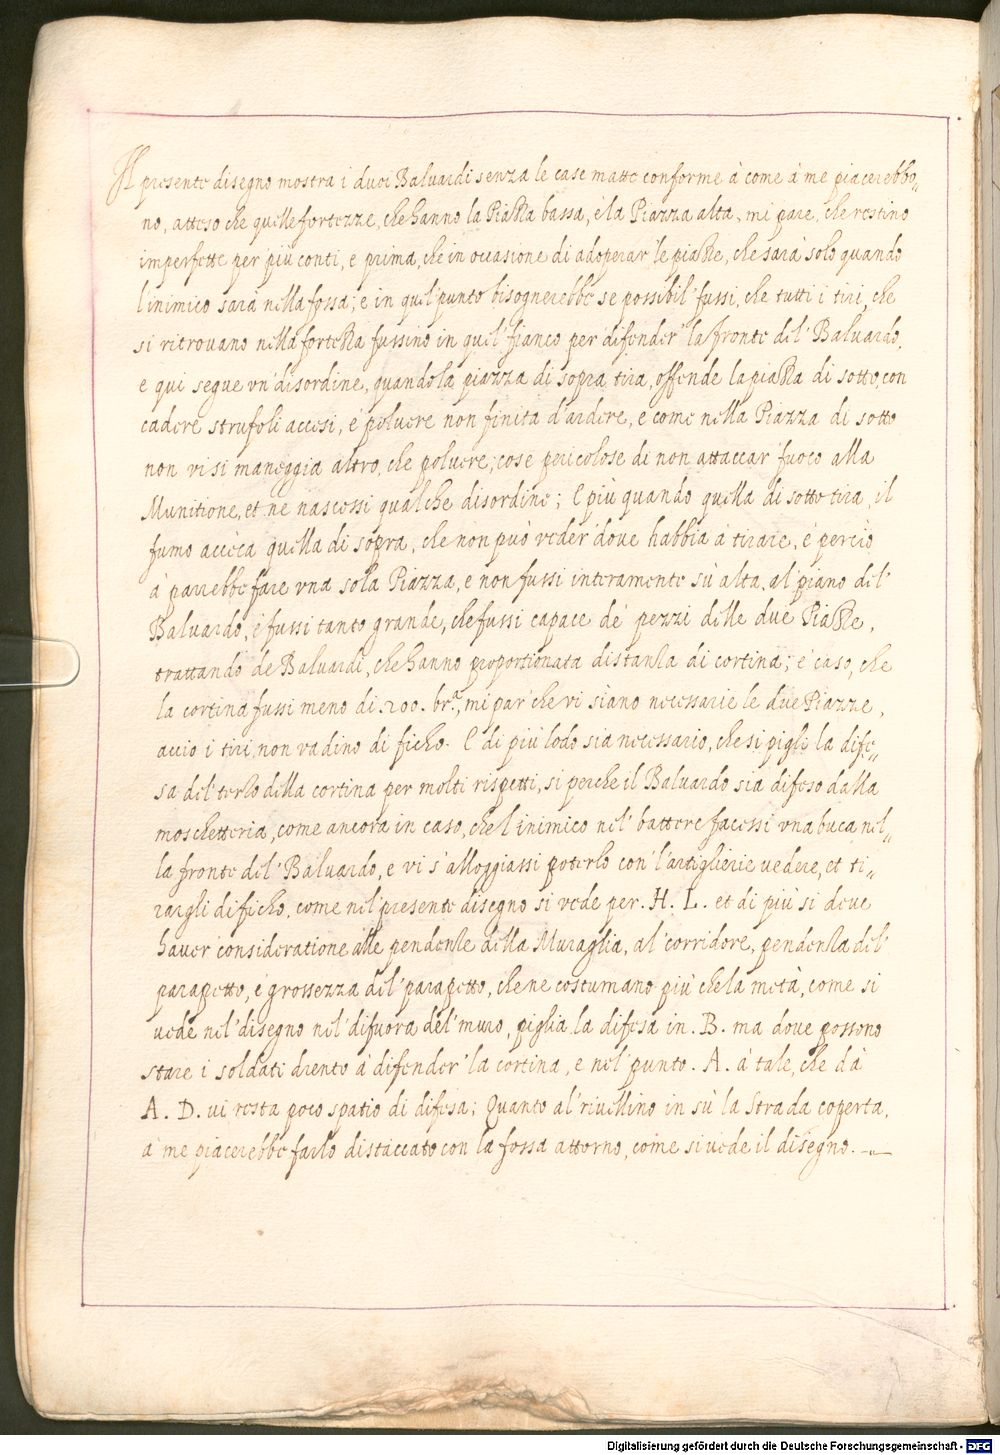 Il presente disegno mostra i duoi Baluardi senza le case matte conforme à come à me piacerebbo„
no, atteso che quelle fortezze, che hanno la Piazza bassa, e la Piazza alta, mi pare, che restino
imperfette per più conti, e prima, che in occasione di adoperar' le piazze, che sarà solo quando
l'inimico sarà nella fossa; e in quel' punto bisognerebbe se possibil' fussi, che tutti i tiri, che
si ritrovano nella fortezza fussino in quel' fianco per difender' la fronte del' Baluardo,
e qui segue un' disordine, quando la piazza di sopra tira, offende la piazza di sotto, con
cadere strufoli accesi, è polvere non finita d'ardere, e come nella Piazza di sotto
non vi si maneggia altro, che polvere; cose pericolose di non attaccar' fuoco alla
Munitione, et ne nascessi qualche disordine; E più quando quella di sotto tira, il
fumo accèca quella di sopra, che non può veder' dove habbia à tirare, è perciò
à parrebbe fare una sola Piazza, e non fussi interamente sù alta, al' piano del'
Baluardo, è fussi tanto grande, che fussi capace de' pezzi delle due Piazze,
trattando de Baluardi, che hanno proportionata distanza di cortina; e' caso, che
la cortina fussi meno di 200. br.ᵃ, mi par' che vi siano necessarie le due Piazze,
acciò i tiri, non vadino di ficho. E di più lodo sia necessario, che si pigli la dife„
sa del' terzo della cortina per molti rispetti, si perche il Baluardo sia difeso dalla
moschetteria, come ancora in caso, che l'inimico nel' battere facessi una buca nel„
la fronte del' Baluardo, e vi s'alloggiassi poterlo con' l'artiglierie vedere, et ti„
rargli di ficho, come nel' presente disegno si vede per. H. L. et di più si deve
haver' consideratione alle pendenze della Muraglia, al' corridore, pendenza del'
parapetto, è grossezza del' parapetto, che ne costumano più che la metà, come si
vede nel' disegno nel' difuora del' muro, piglia la difesa in. B. ma dove possono
stare i soldati drento à difender' la cortina, e nel' punto. A. à tale, che dà
A. D. vi resta poco spatio di difesa; Quanto al' rivellino in sù la Strada coperta,
à me piacerebbe farlo distaccato con la fossa attorno, come si vede il disegno.
Digitalisierung gefördert durch die Deutsche Forschungsgemeinschaft - DFG